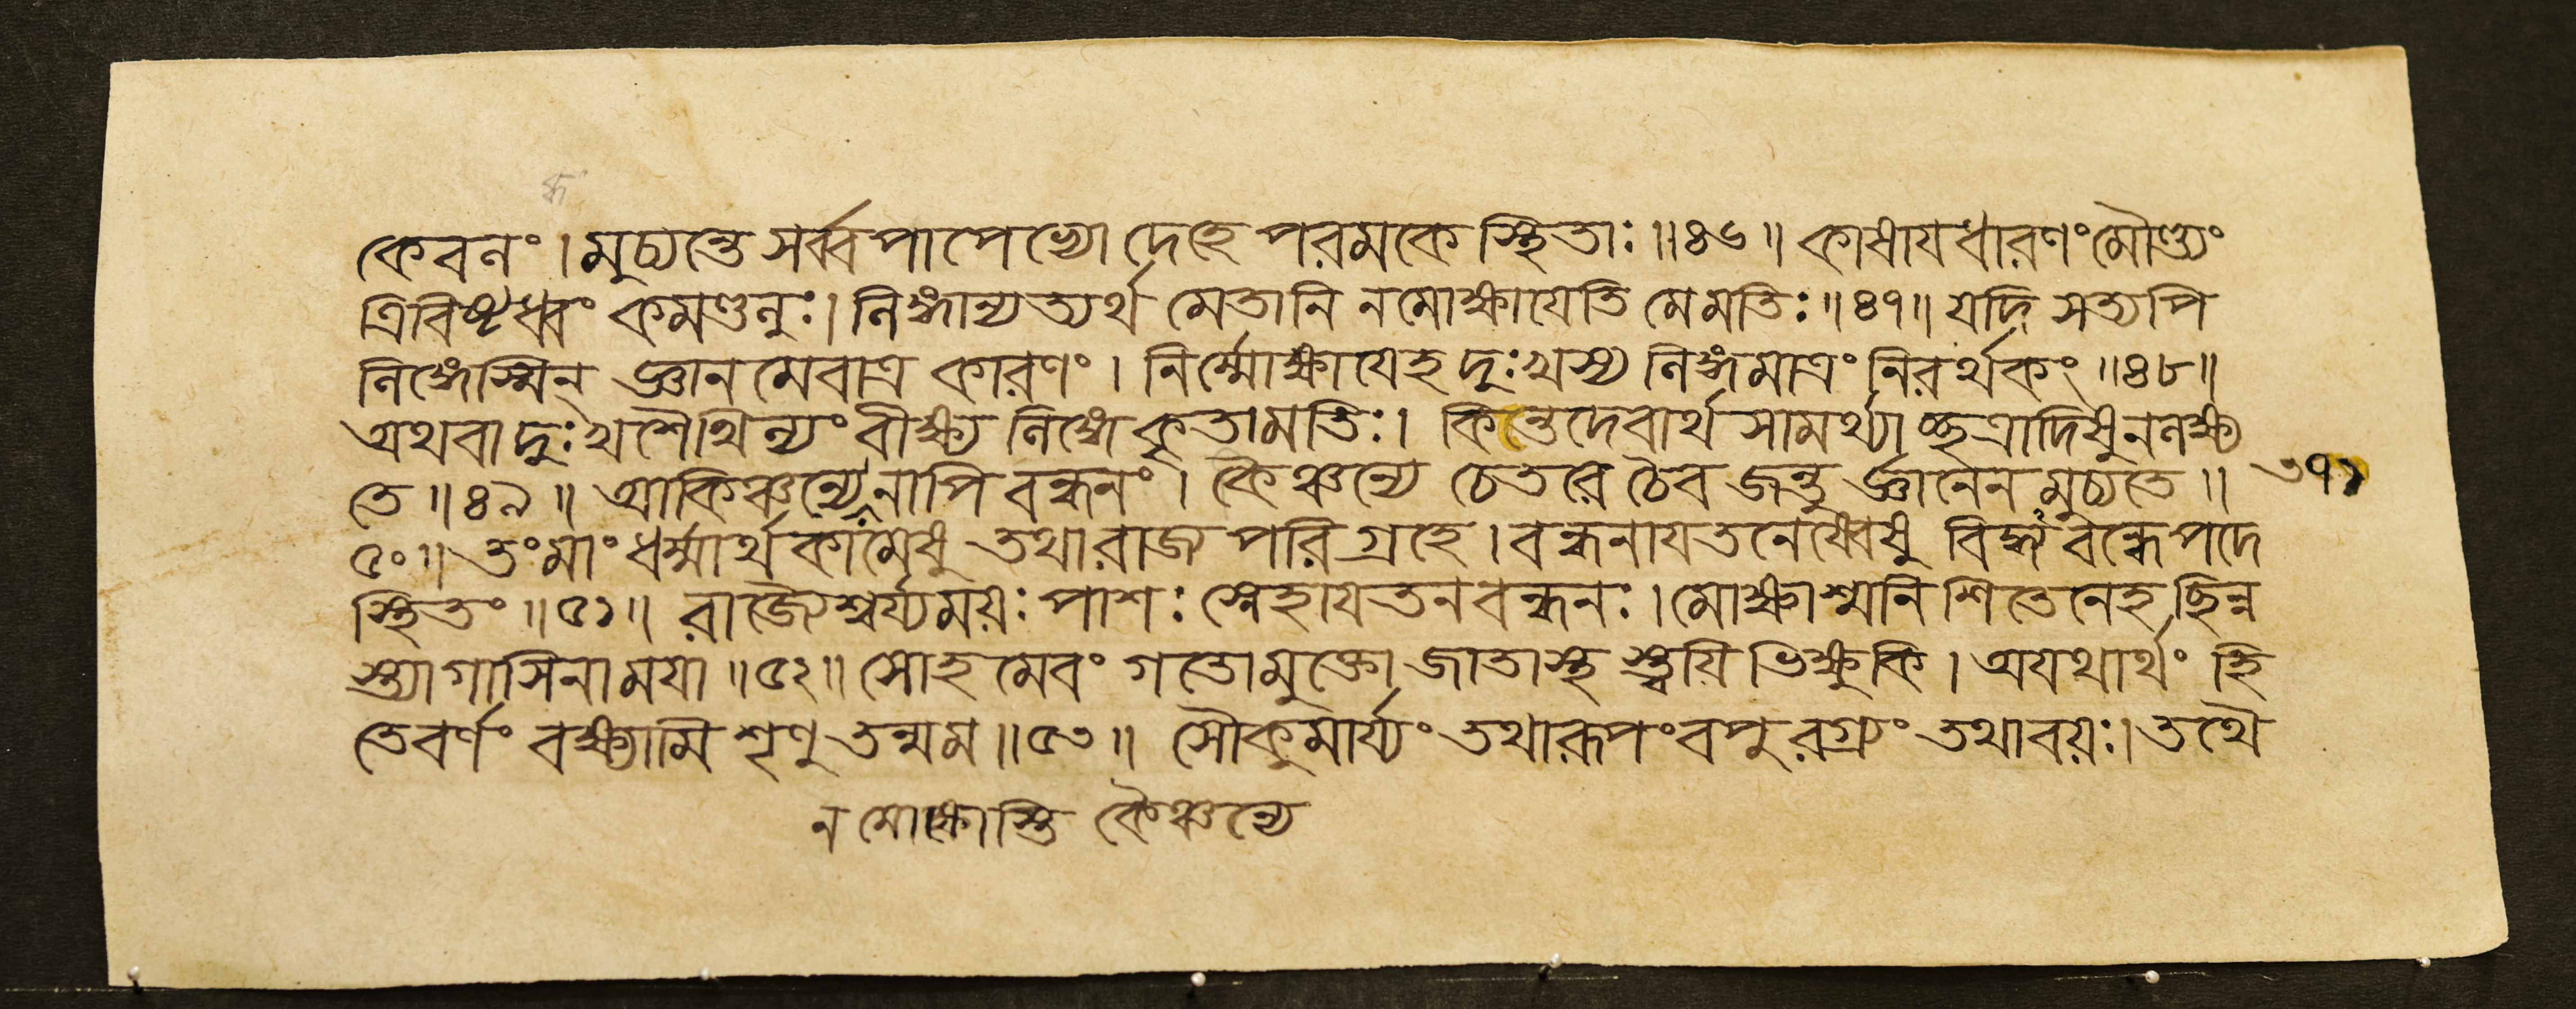 কেবলং। মুচ্যন্তে সর্ব্বপাপেভ্যো দেহে পরমকে স্থিতাঃ॥৪৬॥ কাষায়ধারণং মৌণ্ড্যং
ত্রিবিষ্টব্ধং কমণ্ডলুঃ। লিঙ্গান্যত্যর্থ মেতানি ন মোক্ষায়েতি মে মতিঃ॥৪৭॥ যদি সত্যপি
লিঙ্গেস্মিন্ জ্ঞান মেবাত্র কারণং। নির্ম্মোক্ষায়েহ দুঃখস্য লিঙ্গমাত্রং নিরর্থকং॥৪৮॥
অথবা দুঃখশৈথিল্যং বীক্ষ্য লিঙ্গে কৃতামতিঃ। কিন্তেদেবার্থ সামর্থ্যা চ্ছত্রাদিষু ন লক্ষ্য
তে॥৪৯॥ আকিঞ্চন্যে নাপি বন্ধনং। কৈঞ্চন্যে চেতরে চৈব জন্তু র্জ্ঞানেন মুচ্যতে॥ ৩৭১
৫০॥ তং মাং ধর্ম্মার্থ কামেষু তথা রাজ পরিগ্রহে। বন্ধনায়তনেষ্বেষু বিদ্ধ্যবন্ধে পদে
স্থিতং॥৫১॥ রাজ্যৈশ্বর্য্যময়ঃ পাশঃ স্নেহায়তনবন্ধনঃ। মোক্ষাশ্মনিশিতেনেহ ছিন্ন
স্ত্যাগাসিনা ময়া॥৫২॥ সোহ মেবং গতো মুক্তো জাতাস্থ স্ত্বয়ি ভিক্ষুকি। অযথার্থং হি
তে বর্ণং বক্ষ্যামি শৃণু তন্মম॥৫৩॥ সৌকুমার্য্যং তথা রূপং বপু রগ্র্যং তথা বয়ঃ। তথৈ
ন মোক্ষোস্তি কৈঞ্চন্যে